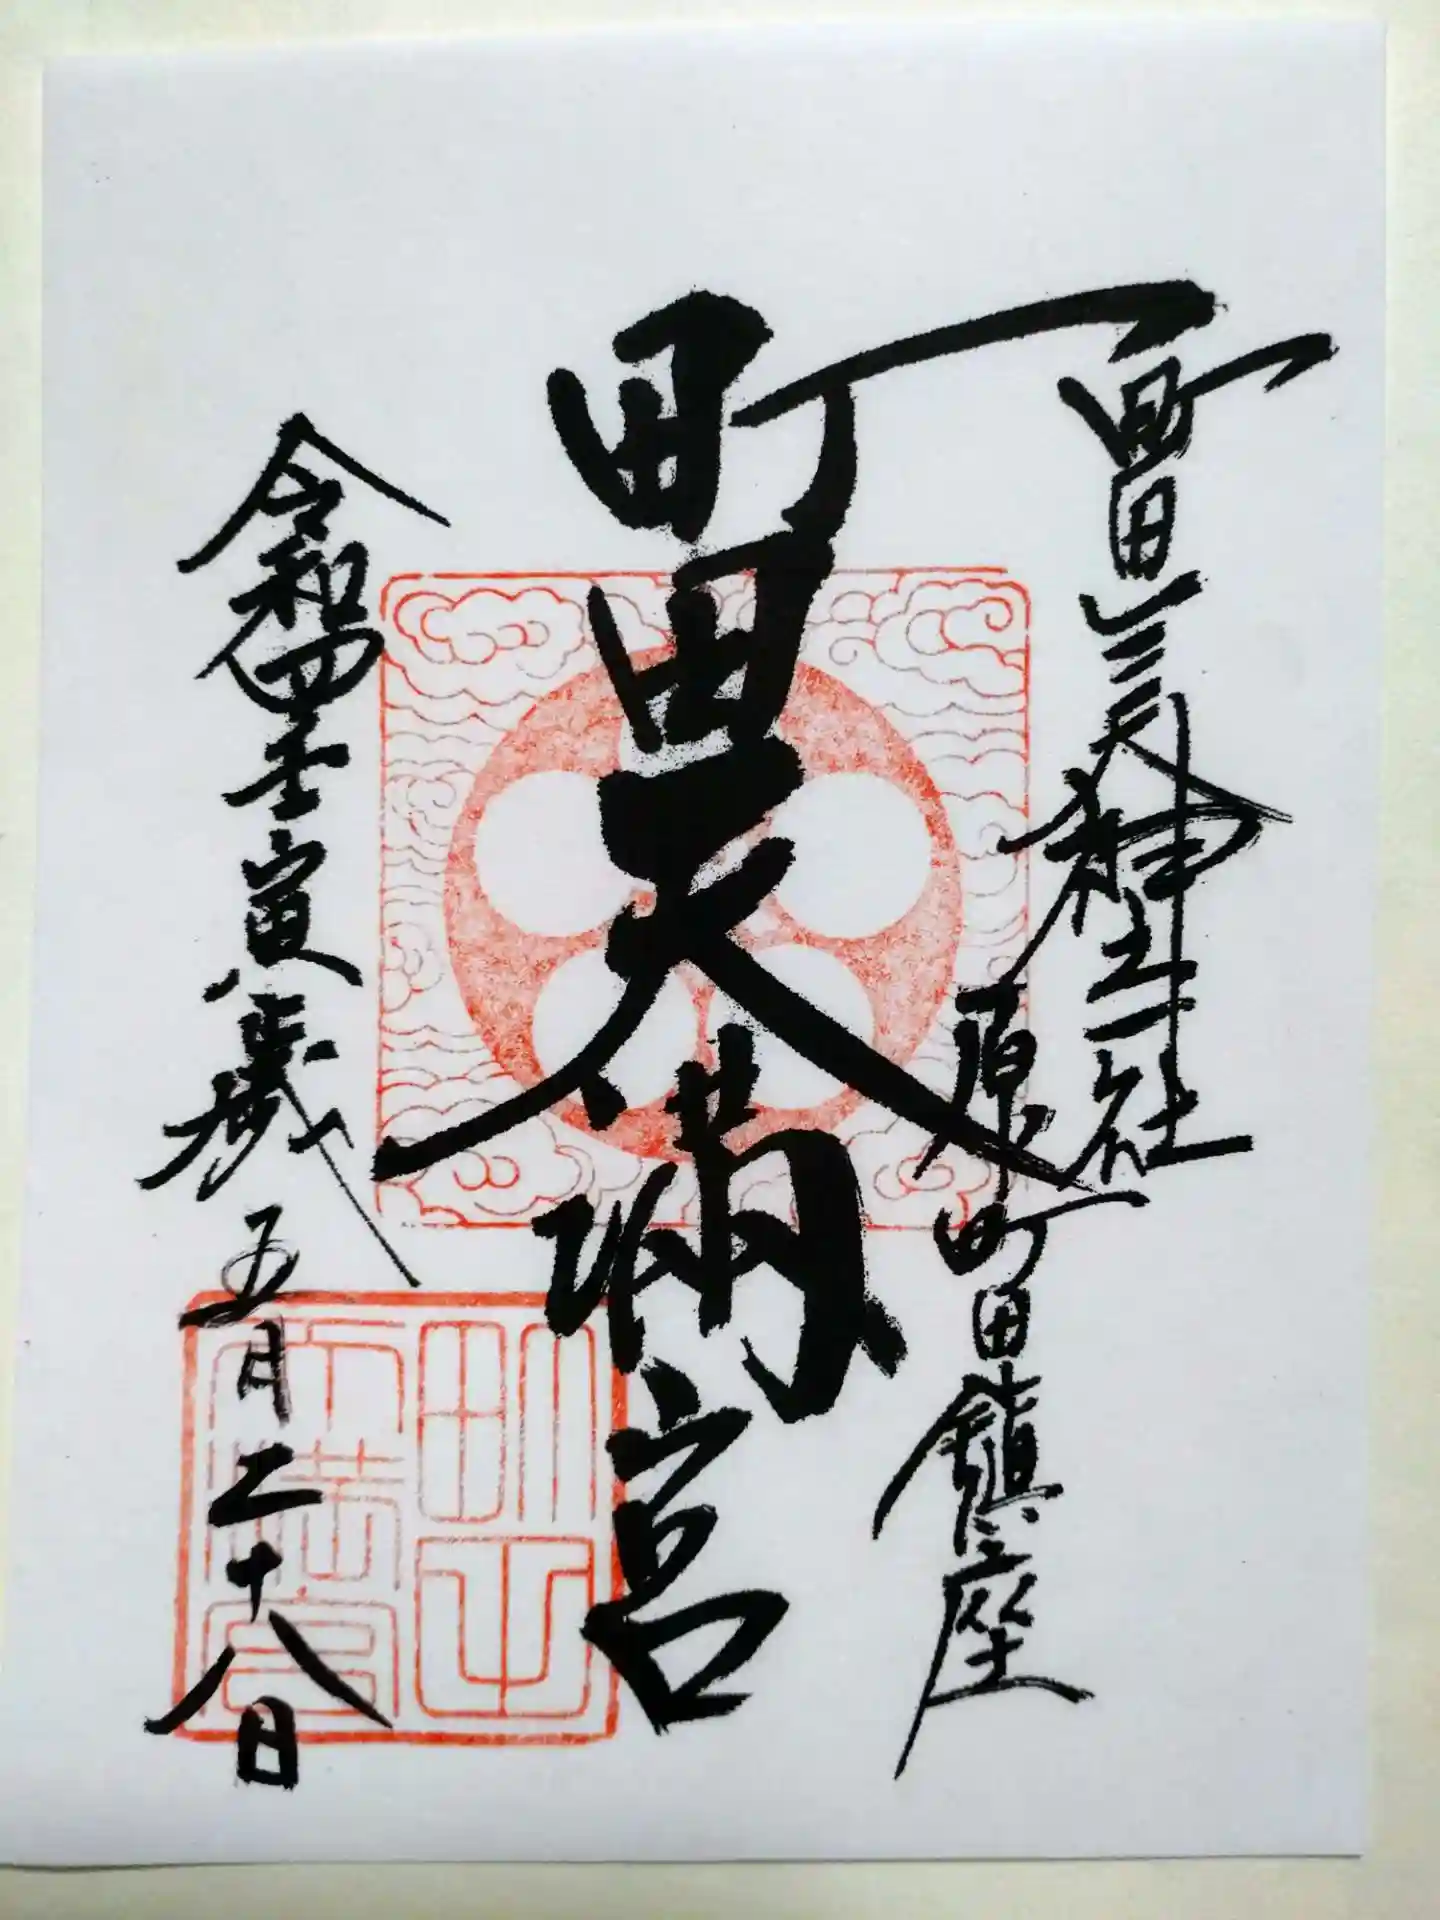 町田三天神社
原町田鎮座
町田天満宮
令和四壬寅歳
五月二十八日
町田天満宮